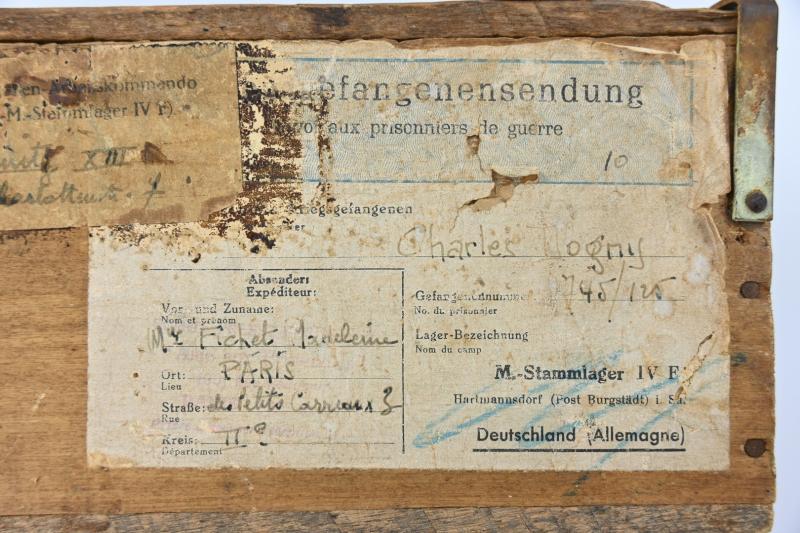 Arbeitskommendo
M.-Stammlager IV F)
XIII
efangenensendung
aux prisonniers de guerre
10
egsgefangenen
Charles Mogny
Absender:
Expéditeur:
Vor- und Zuname:
Nom et prénom
Mme Fichet Madeleine
Ort: PARIS
Lieu
Straße: des Petits Carreaux 3
Rue
Kreis: IIe
Département
Gefangenennummer
745/125
No. du prisonnier
Lager-Bezeichnung
Nom du camp
M.-Stammlager IV F
Hartmannsdorf (Post Burgstädt) i. Sa.
Deutschland (Allemagne)